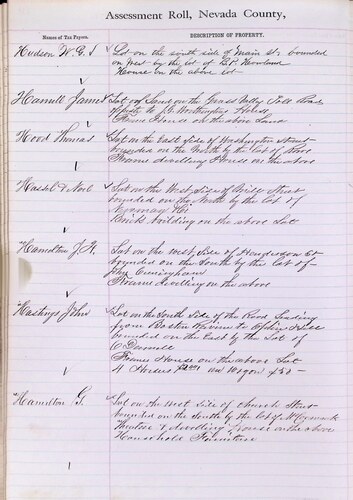 Assessment Roll, Nevada County,
Names of Tax Payers.
DESCRIPTION OF PROPERTY.
Hudson W. G. S Lot on the south side of Main St. bounded
on west by the lot of
House on the above lot
Hamill James Lot of Land on the Grass Valley Toll Road
Frame House on the above Land
Hood Thomas Lot on the East Side of Washington Street
bounded on the North by the lot of
Frame dwelling House on the above
Hassel & Noel Lot on the West Side of Mill Street
bounded on the North by the lot of
Brick building on the above Lot
Hamilton J. H. Lot on the West Side of Henderson St
bounded on the South by the lot of
John Cuningham
Frame dwelling on the above
Hastings John Lot on the South Side of the Road Leading
from Boston Ravine to Ophir Hill
bounded on the East by the Lot of
O Donnell
Frame House on the above Lot
4 Horses one Wagon $50 -
Hamilton G. Lot on the West Side of Church Street
bounded on the South by the lot of McCormack
& dwelling House on the above
Household Furniture